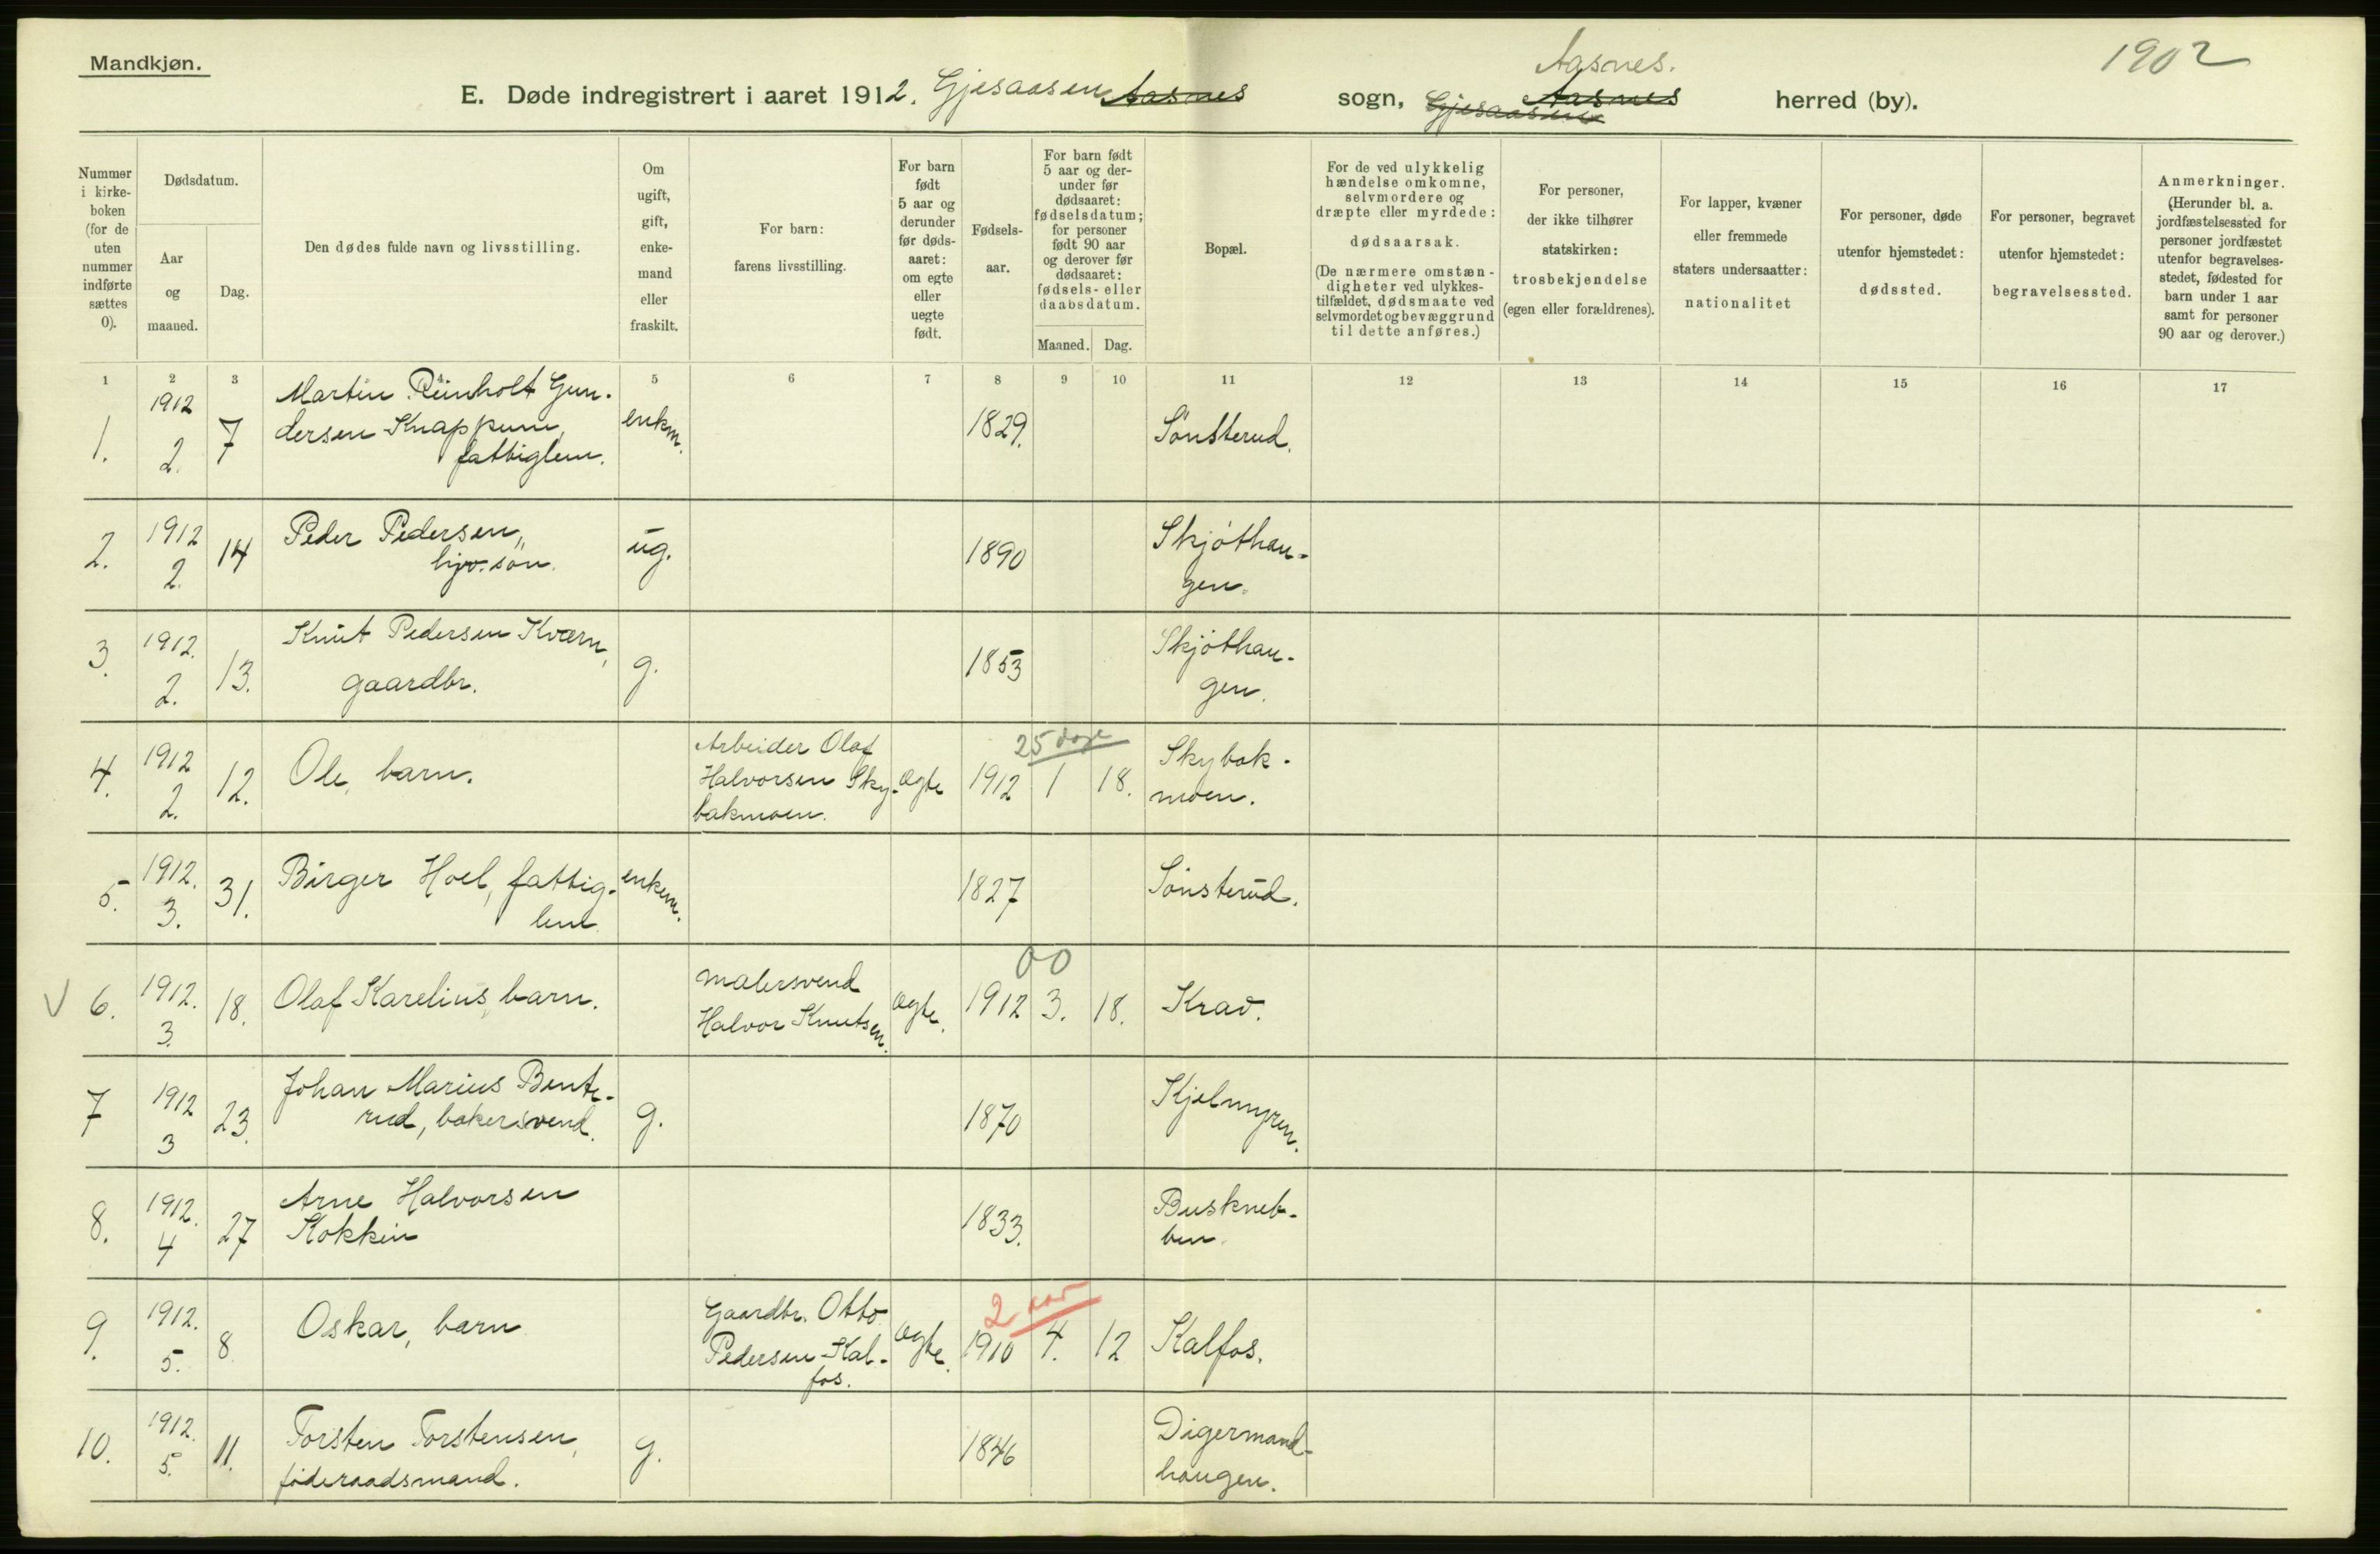 Mandkjøn.
1902
Aasnes.
E. Døde indregistrert i aaret 1912. Gjesaasen Aasnes sogn, Gjesaasen Aasnes herred (by).
Nummer i kirke-boken (for de uten nummer indførte sættes 0).
Dødsdatum.
Aar og maaned.
Dag.
Den dødes fulde navn og livsstilling.
Om ugift, gift, enke-mand eller fraskilt.
For barn: farens livsstilling.
For barn født 5 aar og derunder før døds-aaret: om egte eller uegte født.
Fødsels-aar.
For barn født 5 aar og der-under før dødsaaret: fødselsdatum; for personer født 90 aar og derover før dødsaaret: fødsels- eller daabsdatum.
Maaned. Dag.
Bopæl.
For de ved ulykkelig hændelse omkomne, selvmordere og dræpte eller myrdede: dødsaarsak. (De nærmere omstæn-digheter ved ulykkes-tilfældet, dødsmaate ved selvmordet og bevæggrund til dette anføres.)
For personer, der ikke tilhører statskirken: trosbekjendelse (egen eller forældrenes).
For lapper, kvæner eller fremmede staters undersaatter: nationalitet
For personer, døde utenfor hjemstedet: dødssted.
For personer, begravet utenfor hjemstedet: begravelsessted.
Anmerkninger. (Herunder bl. a. jordfæstelsessted for personer jordfæstet utenfor begravelses-stedet, fødested for barn under 1 aar samt for personer 90 aar og derover.)
1 2 3 4 5 6 7 8 9 10 11 12 13 14 15 16 17
1. 1912 2. 7 Martin Reinholt Gun-dersen Knappum, fattiglem. enkm. 1829. Sönsterud.
2. 1912 2. 14 Peder Pedersen, sön. ug. 1890 Skjöthau-gen.
3. 1912. 2. 13. Knut Pedersen Kværn, gaardbr. g. 1853 Skjöthau-gen.
4. 1912 2. 12. Ole, barn. Arbeider Olaf Halvorsen Sky-bakmoen. ægte 1912 25 dage 1 18. Skybak-moen.
5. 1912. 3. 31. Birger Hoel, fattig-lem enkem. 1827 Sönsterud.
V 6. 1912. 3. 18. Olaf Karelius, barn. malersvend Halvor Knutsen. ægte. 1912 00 3. 18. Krav.
7 1912 3 23. Johan Marius Bente-rud, bakersvend. g. 1870 Kjelmyren.
8. 1912. 4 27 Arne Halvorsen Kokkin 1833. Buskneb-ben.
9. 1912. 5. 8 Oskar, barn Gaardbr. Otto Pedersen Kal-fos. ægte. 2 aar 1910 4. 12 Kalfos.
10. 1912. 5. 11. Torsten Torstensen, föderaadsmand. g. 1846 Digermand-haugen.